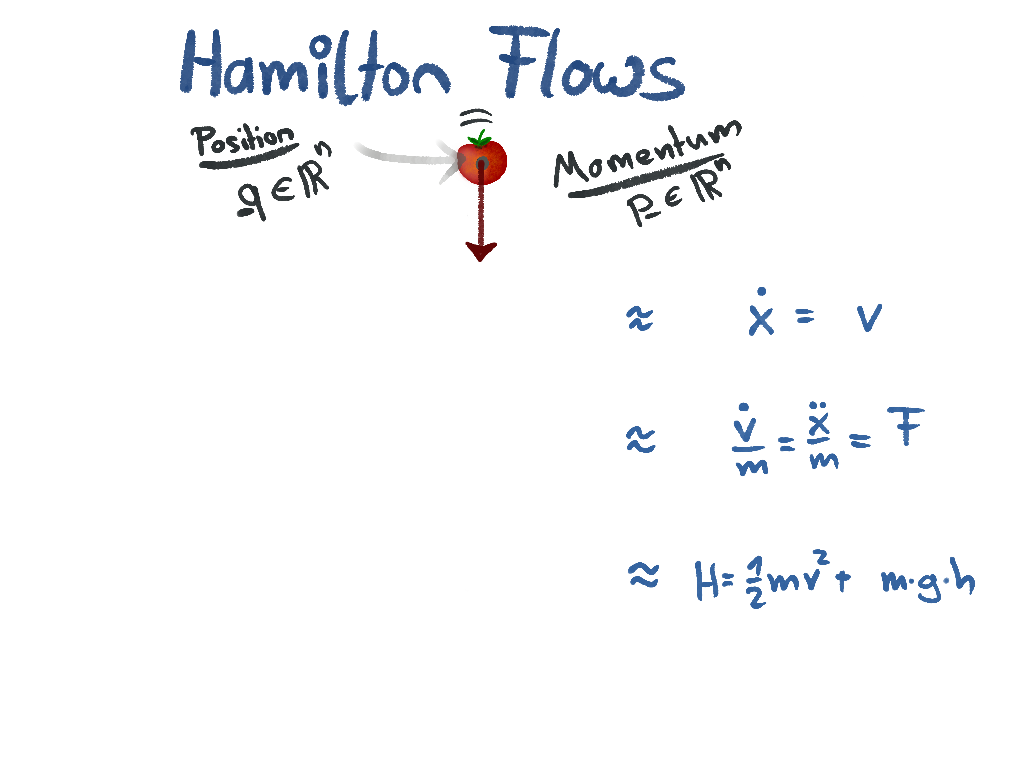 Hamilton Flows
Position
q ∈ ℝⁿ
Momentum
p ∈ ℝⁿ
≈ ẋ = v
≈ v̇/m = ẍ/m = F
≈ H = ½mv² + m·g·h